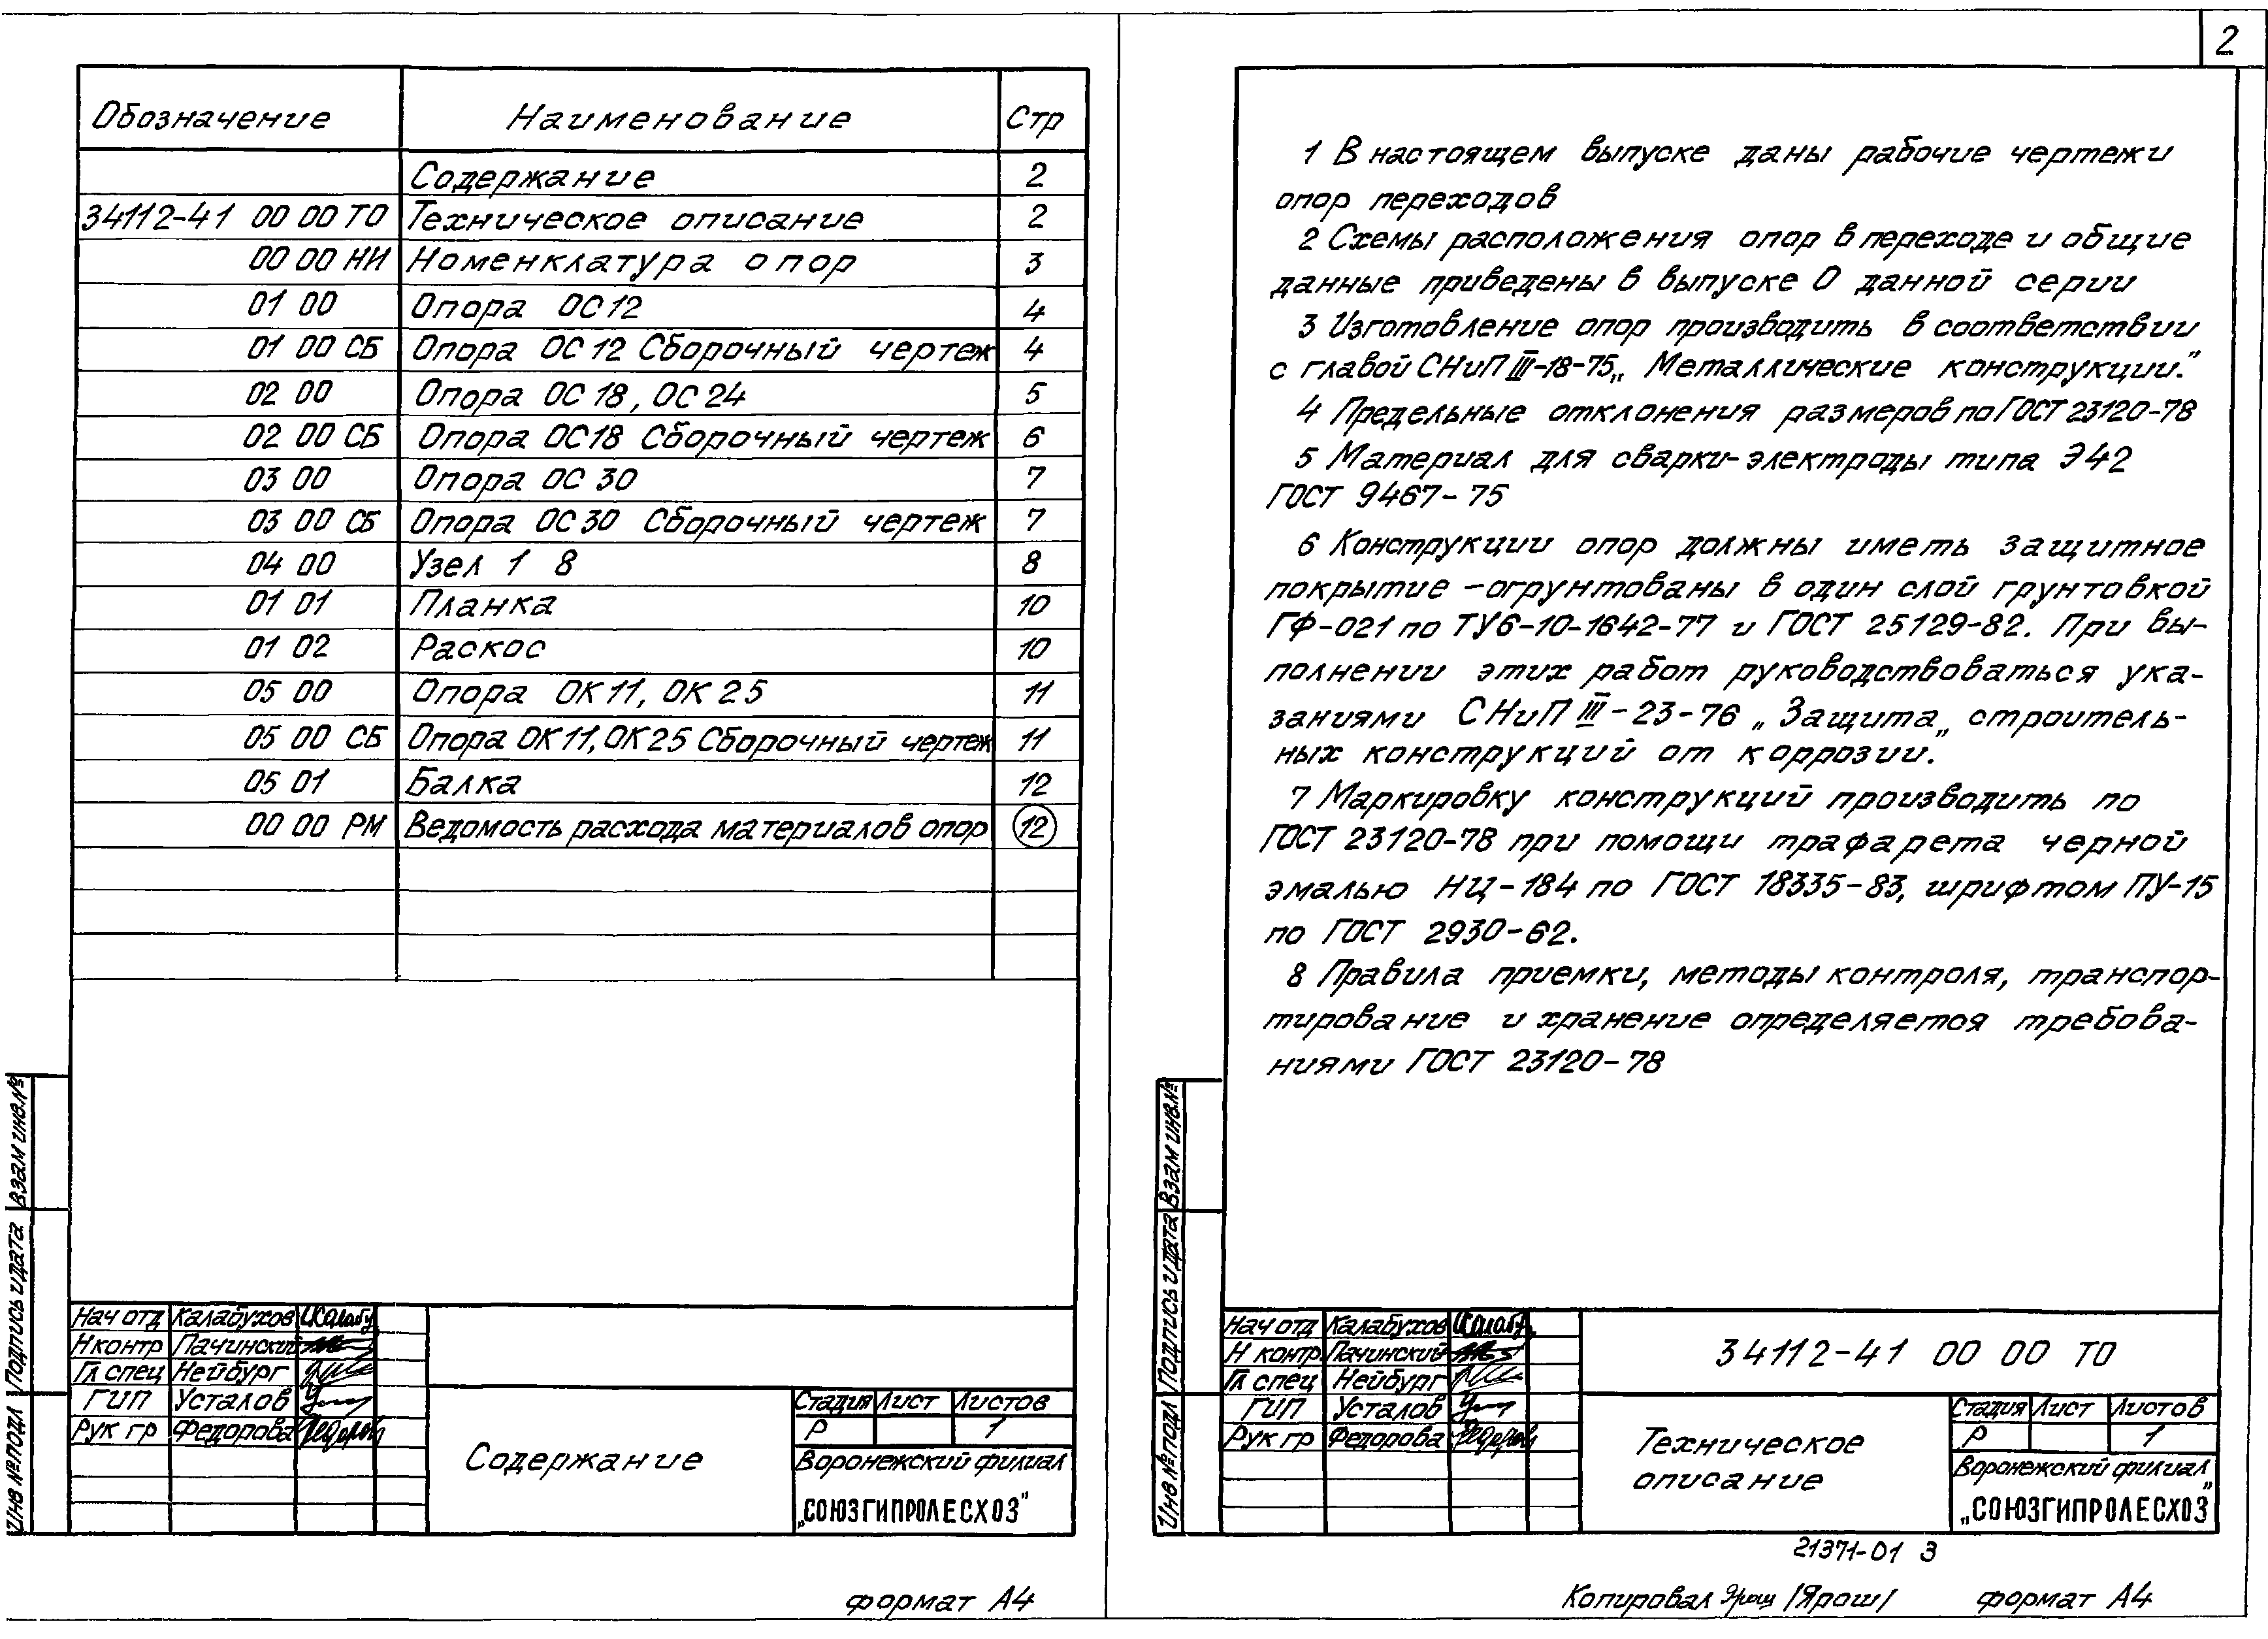 2
Обозначение Наименование Стр
Содержание 2
34112-41 00 00 ТО Техническое описание 2
00 00 НИ Номенклатура опор 3
01 00 Опора ОС12 4
01 00 СБ Опора ОС12 Сборочный чертеж 4
02 00 Опора ОС18, ОС24 5
02 00 СБ Опора ОС18 Сборочный чертеж 6
03 00 Опора ОС30 7
03 00 СБ Опора ОС30 Сборочный чертеж 7
04 00 Узел 1 8 8
01 01 Планка 10
01 02 Раскос 10
05 00 Опора ОК11, ОК25 11
05 00 СБ Опора ОК11, ОК25 Сборочный чертеж 11
05 01 Балка 12
00 00 РМ Ведомость расхода материалов опор 12
Взам инв.№
Подпись и дата
Инв № подл
Нач отд Калабухов
Н контр Пачинский
Гл спец Нейбург
ГИП Усталов
Рук гр Федорова
Содержание
Стадия Лист Листов
Р 1
Воронежский филиал
„СОЮЗГИПРОЛЕСХОЗ"
формат А4
1 В настоящем выпуске даны рабочие чертежи
опор переходов
2 Схемы расположения опор в переходе и общие
данные приведены в выпуске 0 данной серии
3 Изготовление опор производить в соответствии
с главой СНиП III-18-75 „Металлические конструкции."
4 Предельные отклонения размеров по ГОСТ 23120-78
5 Материал для сварки-электроды типа Э42
ГОСТ 9467-75
6 Конструкции опор должны иметь защитное
покрытие -огрунтованы в один слой грунтовкой
ГФ-021 по ТУ6-10-1642-77 и ГОСТ 25129-82. При вы-
полнении этих работ руководствоваться ука-
заниями СНиП III-23-76 „Защита„ строитель-
ных конструкций от коррозии.
7 Маркировку конструкций производить по
ГОСТ 23120-78 при помощи трафарета черной
эмалью НЦ-184 по ГОСТ 18335-83, шрифтом ПУ-15
по ГОСТ 2930-62.
8 Правила приемки, методы контроля, транспор-
тирование и хранение определяется требова-
ниями ГОСТ 23120-78
Взам инв.№
Подпись и дата
Инв № подл
Нач отд Калабухов
Н контр Пачинский
Гл спец Нейбург
ГИП Усталов
Рук гр Федорова
34112-41 00 00 ТО
Техническое
описание
Стадия Лист Листов
Р 1
Воронежский филиал
„СОЮЗГИПРОЛЕСХОЗ"
21371-01 3
Копировал /Ярош/ формат А4